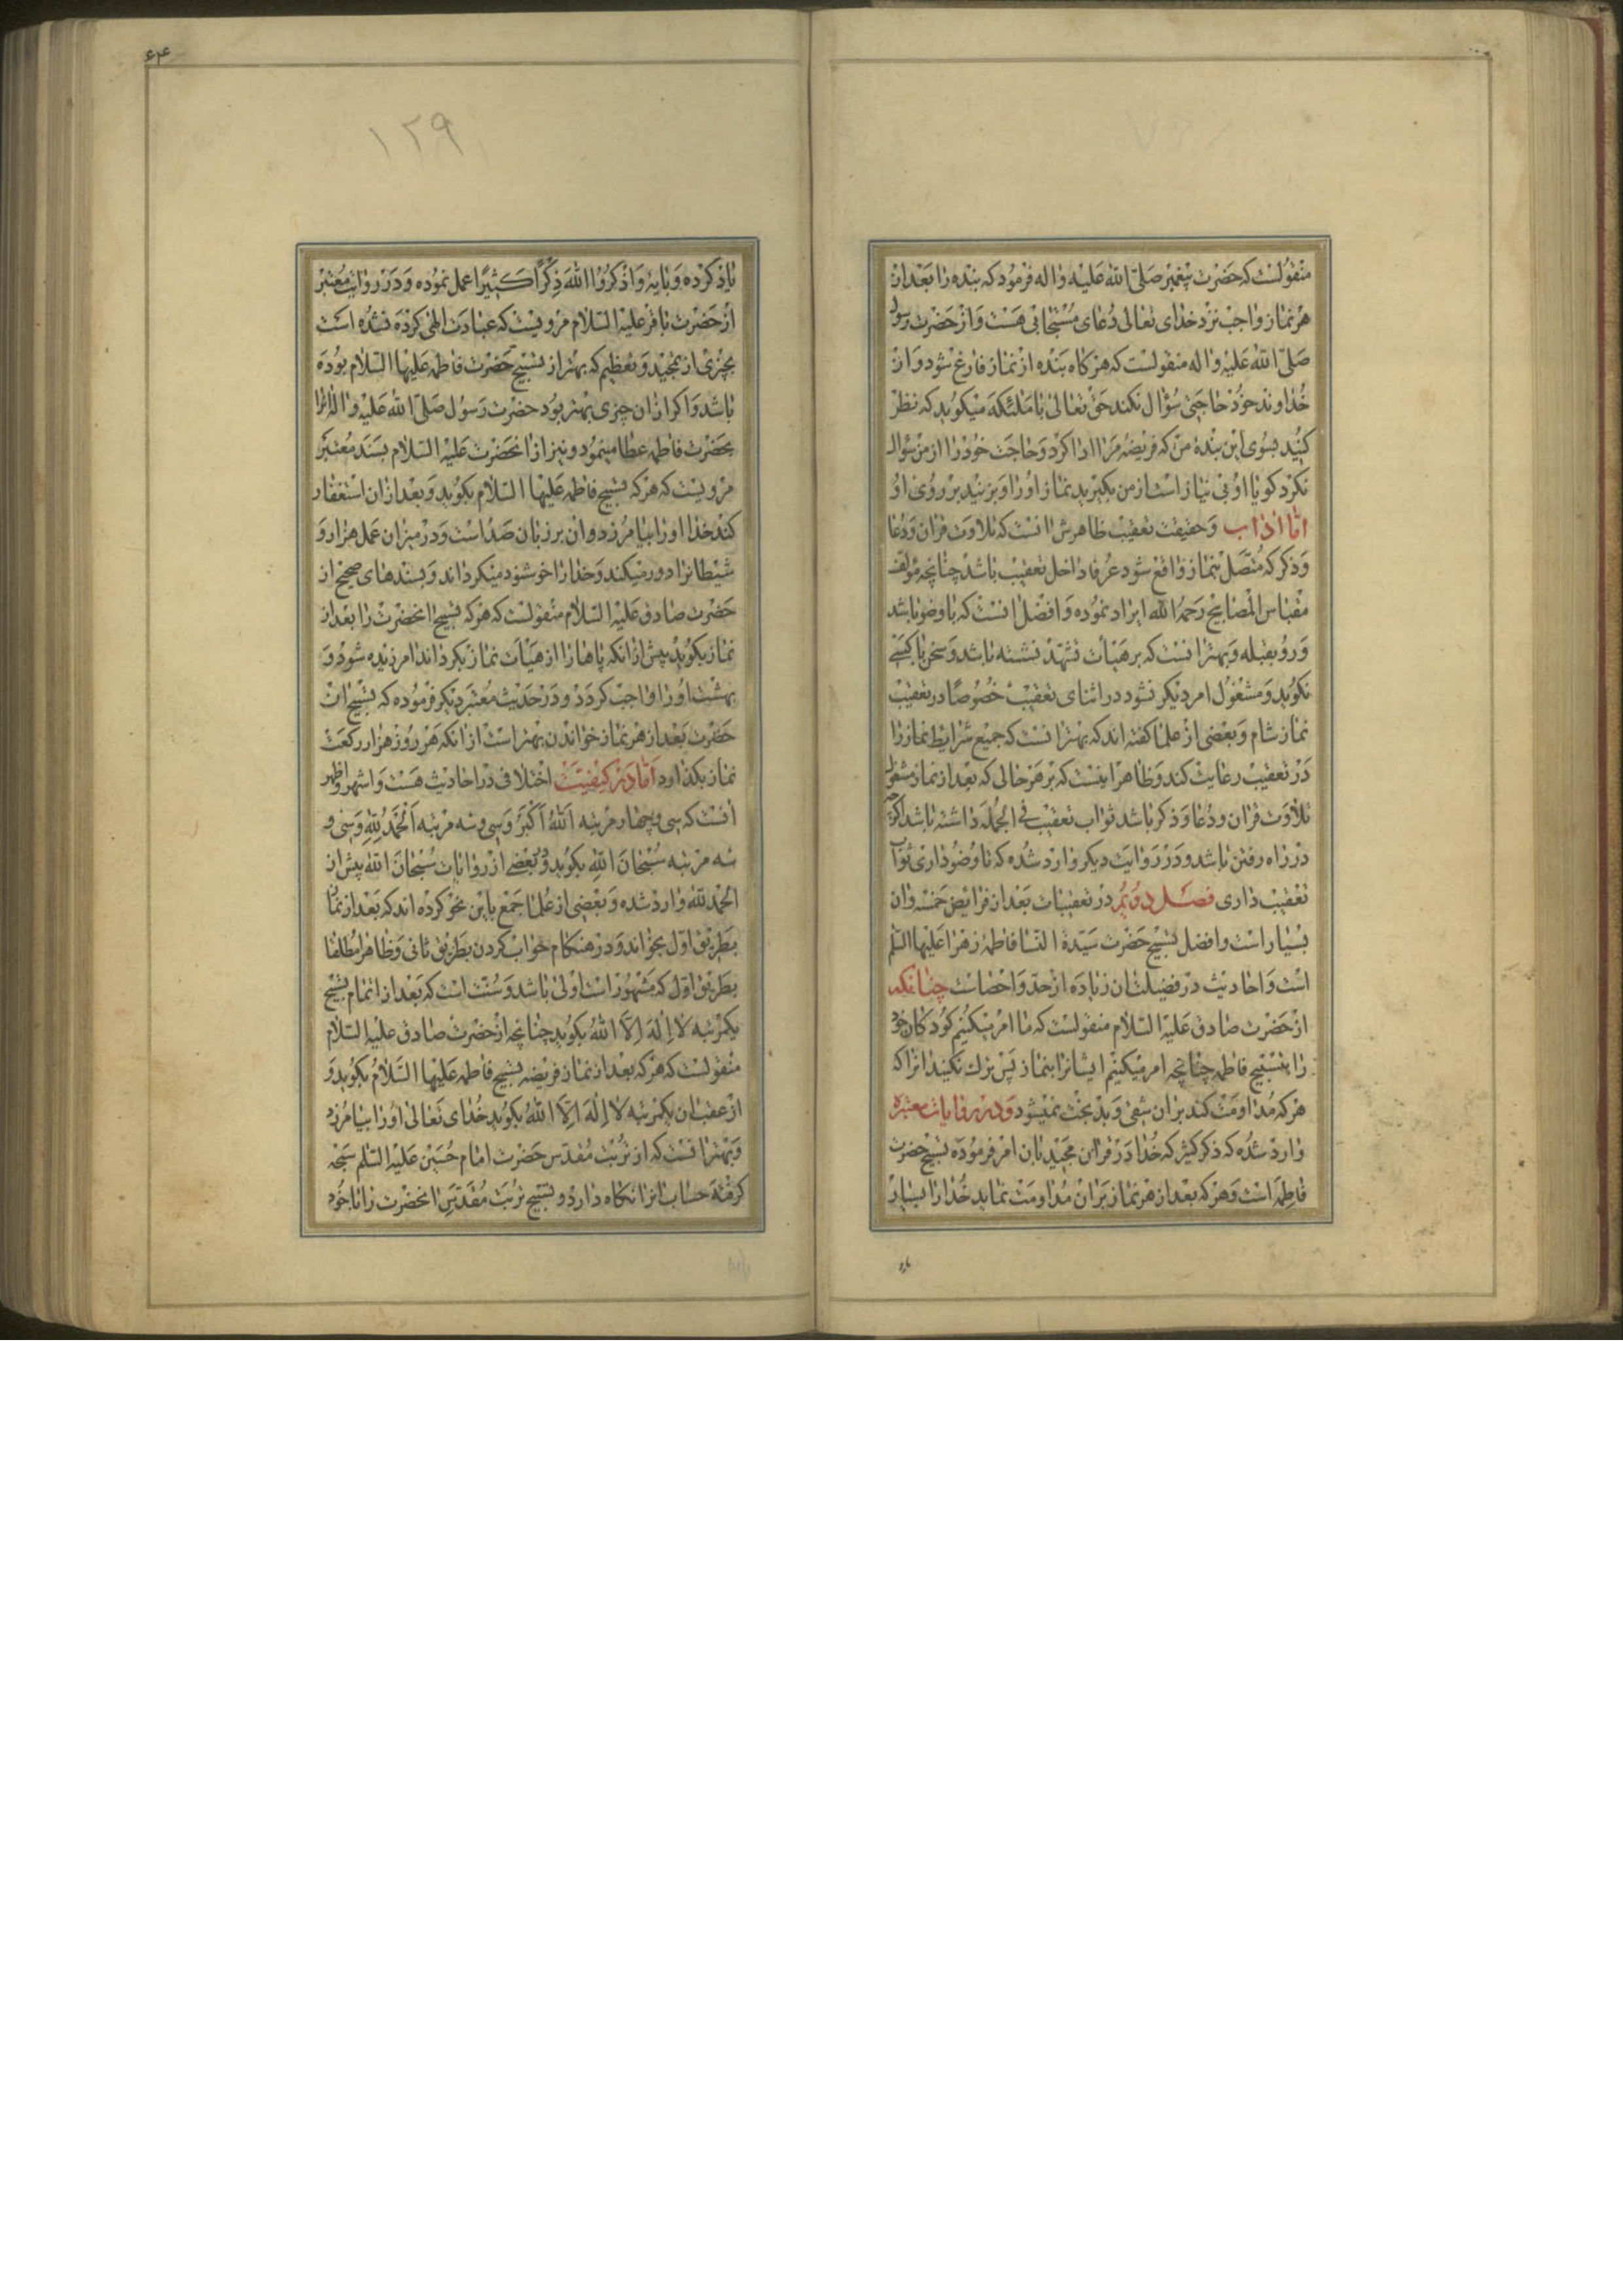 منقولست که حضرت پیغمبر صلی الله علیه و اله فرمود که بنده را بعد از
هر نماز واجب نزد خدای تعالی دعای مستجابی هست و از حضرت رسول
صلی الله علیه و اله منقولست که هر کاه بنده از نماز فارغ شود و از
خداوند خود حاجتی سؤال نکند حق تعالی با ملئکه میکوید که نظر
کنید بسوی این بنده من که فریضه مرا ادا کرد و حاجت خود را از من سؤال
نکرد کویا او بی نیاز است از من بکیرید نماز او را و بزنید بر روی او
اما اداب و حقیقت تعقیب ظاهرش انست که تلاوت قران و دعا
و ذکر که متصل بنماز واقع شود عرفا داخل تعقیب باشد چنانچه مؤلف
مقباس المصابیح رحمه الله ایراد نموده و افضل انست که باوضو باشد
و رو بقبله و بهتر انست که بر هیأت تشهد نشسته باشد و سخن با کسی
نکوید و مشغول امر دیکر نشود در اثنای تعقیب خصوصا در تعقیب
نماز شام و بعضی از علما کفته اند که بهتر انست که جمیع شرایط نماز را
در تعقیب رعایت کند و ظاهر اینست که بر هر حالی که بعد از نماز مشغول
تلاوت قران و دعا و ذکر باشد ثواب تعقیب فی الجمله داشته باشد اکرچه
در راه رفتن باشد و در روایت دیکر وارد شده که تا وضو داری ثواب
تعقیب داری فصل دویم در تعقیبات بعد از فرایض خمسه و ان
بسیار است و افضل تسبیح حضرت سیدة النسا فاطمه زهرا علیها السلم
است و احادیث در فضیلت ان زیاده از حد و احصاست چنانکه
از حضرت صادق علیه السلام منقولست که ما امر میکنیم کودکان خود
را بتسبیح فاطمه چنانچه امر میکنیم ایشانرا بنماز پس ترک نکنید انرا که
هر که مداومت کند بر ان شقی و بد بخت نمیشود و در روایات معتبره
وارد شده که ذکر کثیر که خدا در قران مجید بان امر فرموده تسبیح حضرت
فاطمه است و هر که بعد از هر نماز بر ان مداومت نماید خدا را بسیار
یاد
۶۴
۱۲۹
یاد کرده و بایه و اذکروا الله ذکرا کثیرا عمل نموده و در روایت معتبر
از حضرت باقر علیه السلام مرویست که عبادت الهی کرده نشده است
بچیزی از تمجید و تعظیم که بهتر از تسبیح حضرت فاطمه علیها السلام بوده
باشد و اکر از ان چیزی بهتر بود حضرت رسول صلی الله علیه و اله انرا
بحضرت فاطمه عطا مینمود و نیز از انحضرت علیه السلام بسند معتبر
مرویست که هر که تسبیح فاطمه علیها السلام بکوید و بعد از ان استغفار
کند خدا او را بیامرزد و ان بر زبان صد است و در میزان عمل هزار و
شیطانرا دور میکند و خدا را خوشنود میکرداند و بسندهای صحیح از
حضرت صادق علیه السلام منقولست که هر که تسبیح انحضرت را بعد از
نماز بکوید پیش از انکه پاها را از هیأت نماز بکرداند امرزیده شود و
بهشت او را واجب کردد و در حدیث معتبر دیکر فرموده که تسبیح ان
حضرت بعد از هر نماز خواندن بهتر است از انکه هر روز هزار رکعت
نماز بکذارد اما در کیفیتش اختلافی در احادیث هست و اشهر و اظهر
انست که سی و چهار مرتبه الله اکبر و سی و سه مرتبه الحمد لله و سی و
سه مرتبه سبحان الله بکوید و در بعضی از روایات سبحان الله پیش از
الحمد لله وارد شده و بعضی از علما جمع باین نحو کرده اند که بعد از نماز
بطریق اول بخواند و در هنکام خواب کردن بطریق ثانی و ظاهرا مطلقا
بطریق اول که مشهور است اولی باشد و سنت است که بعد از اتمام تسبیح
یکمرتبه لا اله الا الله بکوید چنانچه از حضرت صادق علیه السلام
منقولست که هر که بعد از نماز فریضه تسبیح فاطمه علیها السلام بکوید و
از عقب ان یکمرتبه لا اله الا الله بکوید خدای تعالی او را بیامرزد
و بهتر انست که از تربت مقدس حضرت امام حسین علیه السلم سبحه
کرفته حساب انرا نکاه دارد و تسبیح تربت مقدس انحضرت را با خود